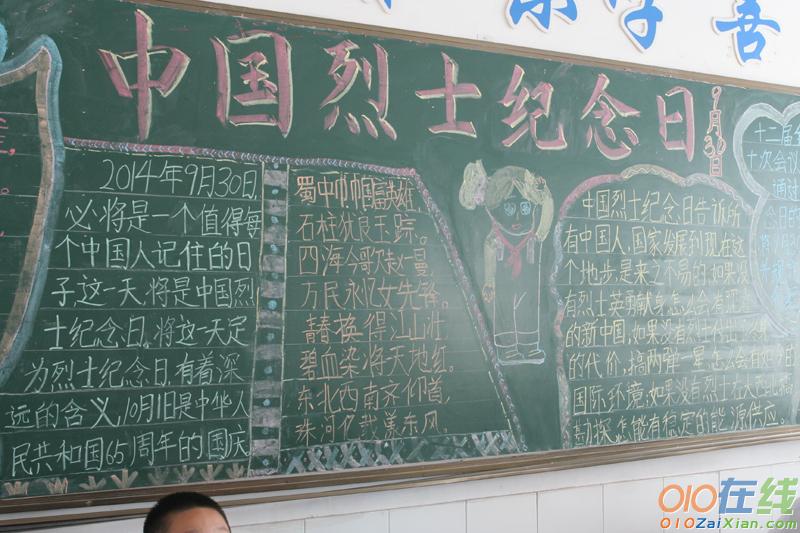 中国烈士纪念日
9月30日
2014年9月30日
必将是一个值得每
个中国人记住的日
子这一天,将是中国烈
士纪念日。将这一天定
为烈士纪念日,有着深
远的含义,10月1日是中华人
民共和国65周年的国庆
蜀中巾帼富英雄
石柱犹良玉踪。
四海今歌赵一曼
万民永忆女先锋。
青春换得江山壮
碧血染将天地红。
东北西南齐仰首,
珠河亿载
东风。
中国烈士纪念日告诉所
有中国人,国家发展到现在这
个地步,是来之不易的,如果没
有烈士英勇献身,怎么会有
的新中国,如果没有烈士
的代价,搞两弹一星,怎么会有
国际环境,如果没有烈士在大
勘探,怎能有稳定的能源供应。
十二届
十次会议
通过
念日
010在线
010ZaiXian.com